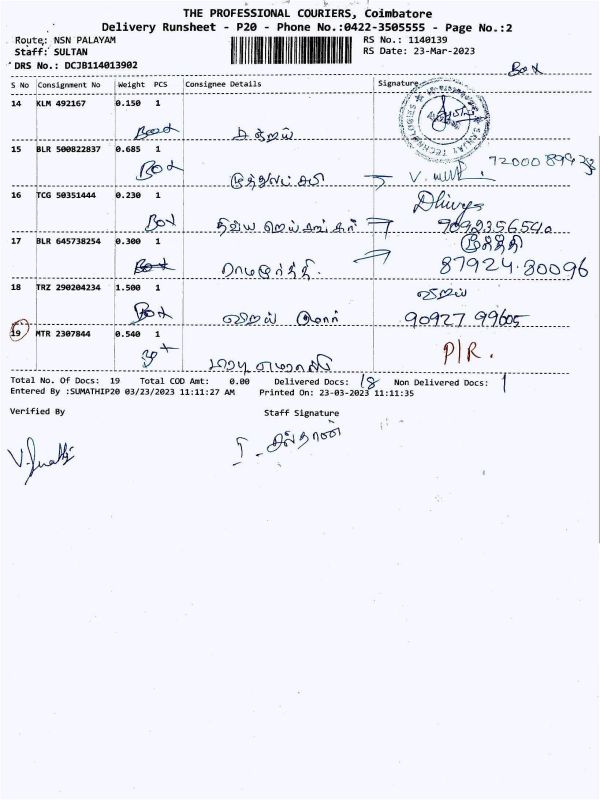 THE PROFESSIONAL COURIERS, Coimbatore
Delivery Runsheet - P20 - Phone No.:0422-3505555 - Page No.:2
Route: NSN PALAYAM RS No.: 1140139
Staff: SULTAN RS Date: 23-Mar-2023
DRS No.: DCJB114013902
Box
S No Consignment No Weight PCS Consignee Details Signature
14 KLM 492167 0.150 1
Box
15 BLR 500822837 0.685 1
Box முத்துலட்சுமி V. 72000 899
16 TCG 50351444 0.230 1 Dhivya
Box திவ்ய 9092356540
17 BLR 645738254 0.300 1 மூர்த்தி
Box ராமமூர்த்தி. 87924.80096
18 TRZ 290204234 1.500 1 விஜய்
Box விஜய் குமார் 90927 99605
19 MTR 2307844 0.540 1 P/R.
Total No. Of Docs: 19 Total COD Amt: 0.00 Delivered Docs: 18 Non Delivered Docs: 1
Entered By :SUMATHIP20 03/23/2023 11:11:27 AM Printed On: 23-03-2023 11:11:35
Verified By Staff Signature
சுல்தான்